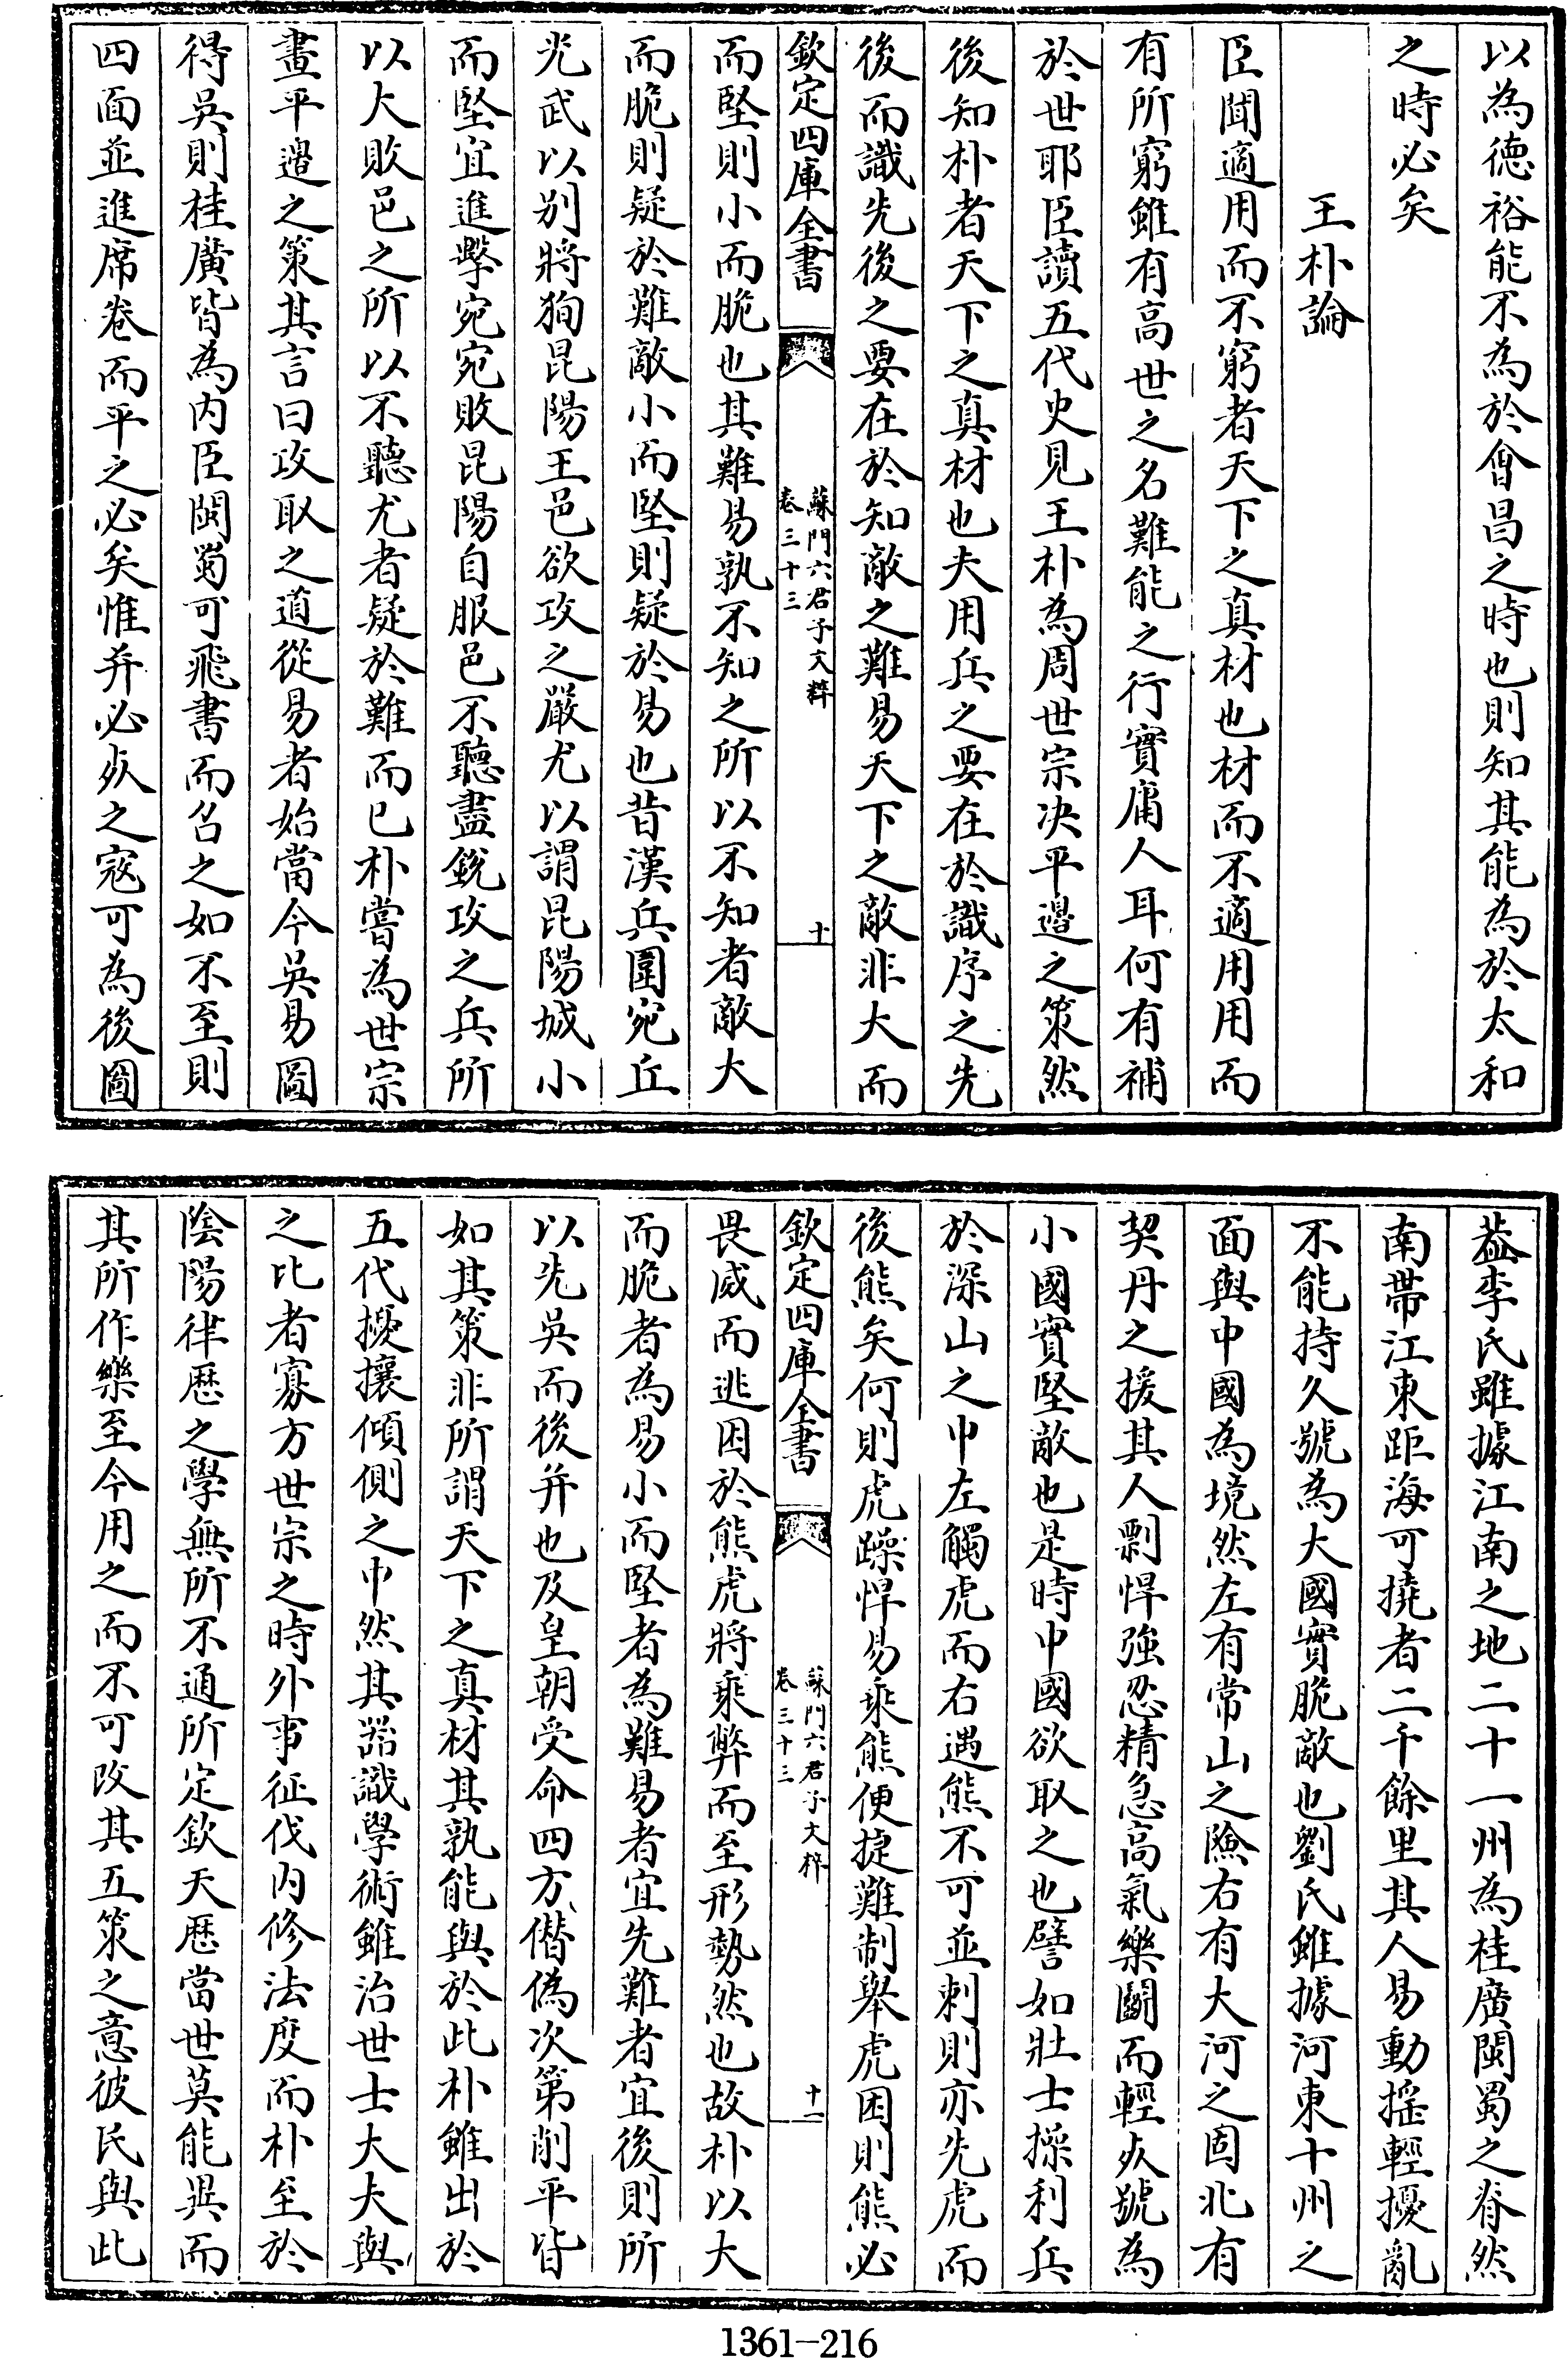 以為德裕能不為於會昌之時也則知其能為於太和
之時必矣
王朴論
臣聞適用而不窮者天下之真材也材而不適用用而
有所窮雖有高世之名難能之行實庸人耳何有補
於世耶臣讀五代史見王朴為周世宗决平邊之策然
後知朴者天下之真材也夫用兵之要在於識序之先
後而識先後之要在於知敵之難易天下之敵非大而
欽定四庫全書
蘇門六君子文粹
卷三十三
十
而堅則小而脆也其難易孰不知之所以不知者敵大
而脆則疑於難敵小而堅則疑於易也昔漢兵圍宛丘
光武以别將狥昆陽王邑欲攻之嚴尤以謂昆陽城小
而堅宜進擊宛宛敗昆陽自服邑不聽盡銳攻之兵所
以大敗邑之所以不聽尤者疑於難而已朴嘗為世宗
畫平邊之策其言曰攻取之道從易者始當今吳易圖
得吳則桂廣皆為内臣閩蜀可飛書而召之如不至則
四面並進席卷而平之必矣惟并必死之寇可為後圖
葢李氏雖據江南之地二十一州為桂廣閩蜀之脊然
南帶江東距海可撓者二千餘里其人易動搖輕擾亂
不能持久號為大國實脆敵也劉氏雖據河東十州之
面與中國為境然左有常山之險右有大河之固北有
契丹之援其人剽悍強忍精急高氣樂鬭而輕死號為
小國實堅敵也是時中國欲取之也譬如壯士操利兵
於深山之中左觸虎而右遇熊不可並刺則亦先虎而
後熊矣何則虎躁悍易乘熊便捷難制舉虎困則熊必
欽定四庫全書
蘇門六君子文粹
卷三十三
十一
畏威而逃困於熊虎將乘弊而至形勢然也故朴以大
而脆者為易小而堅者為難易者宜先難者宜後則所
以先吳而後并也及皇朝受命四方僭偽次第削平皆
如其策非所謂天下之真材其孰能與於此朴雖出於
五代擾攘傾側之中然其器識學術雖治世士大夫與
之比者寡方世宗之時外事征伐内修法度而朴至於
陰陽律厯之學無所不通所定欽天厯當世莫能異而
其所作樂至今用之而不可改其五策之意彼民與此
1361-216